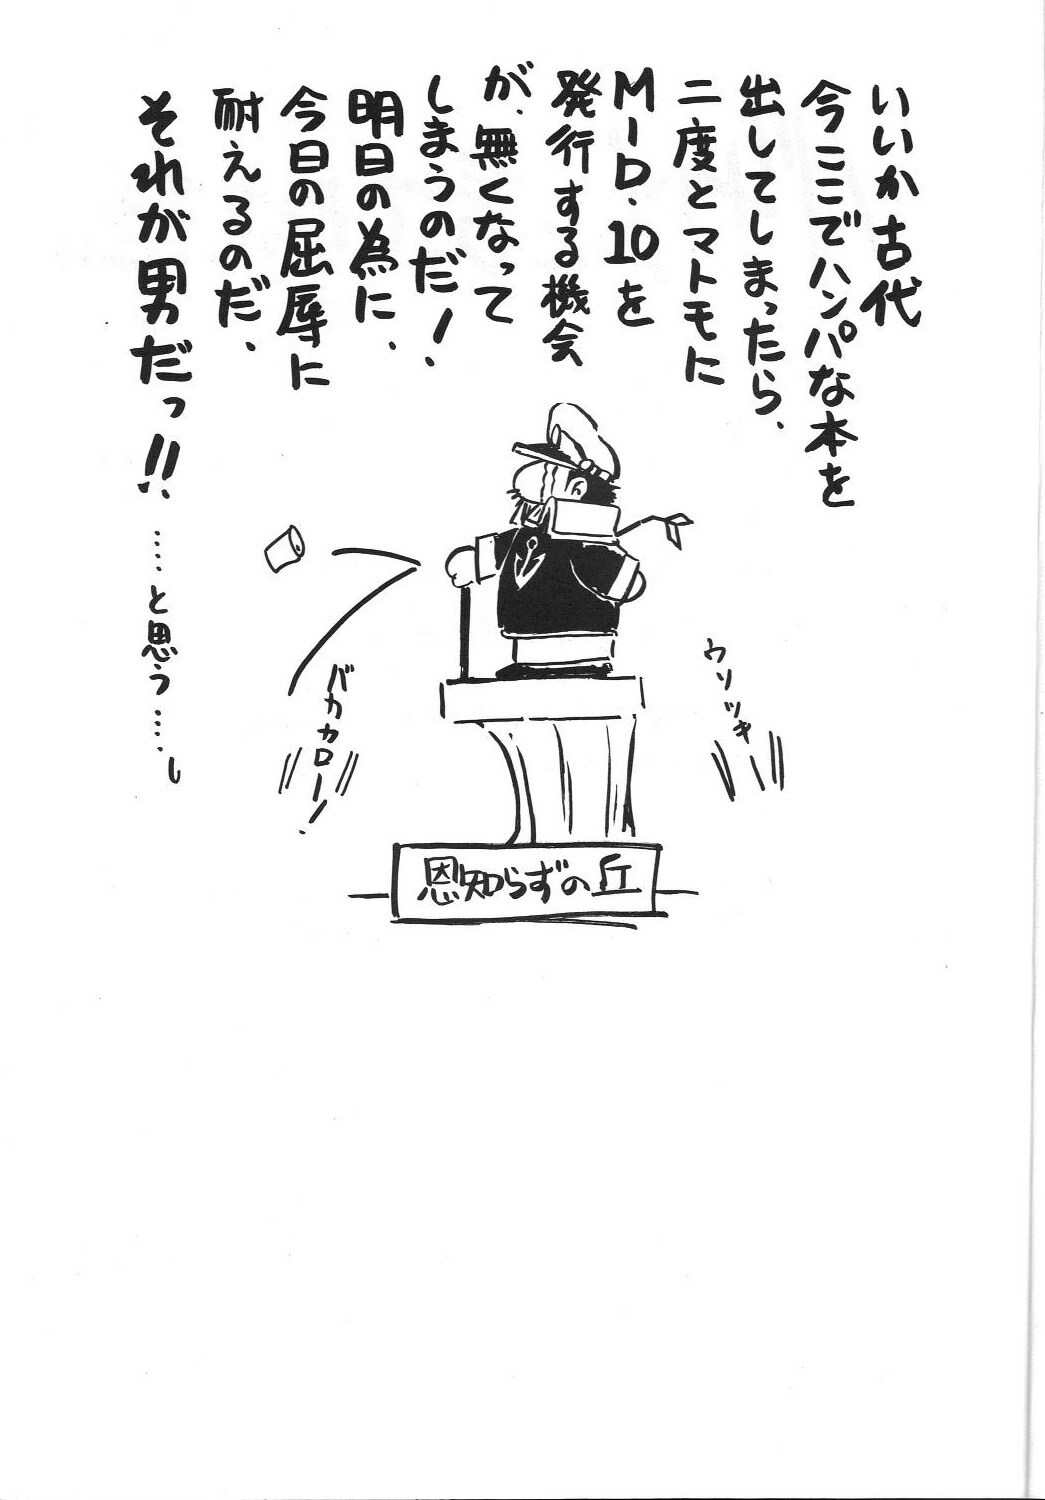 いいか古代
今ここでハンパな本を
出してしまったら、
二度とマトモに
M-D.10を
発行する機会
が、無くなって
しまうのだ!、
明日の為に、
今日の屈辱に
耐えるのだ、
それが男だっ!!
……と思う…し
ウソツキ
バカカロー!
恩知らずの丘